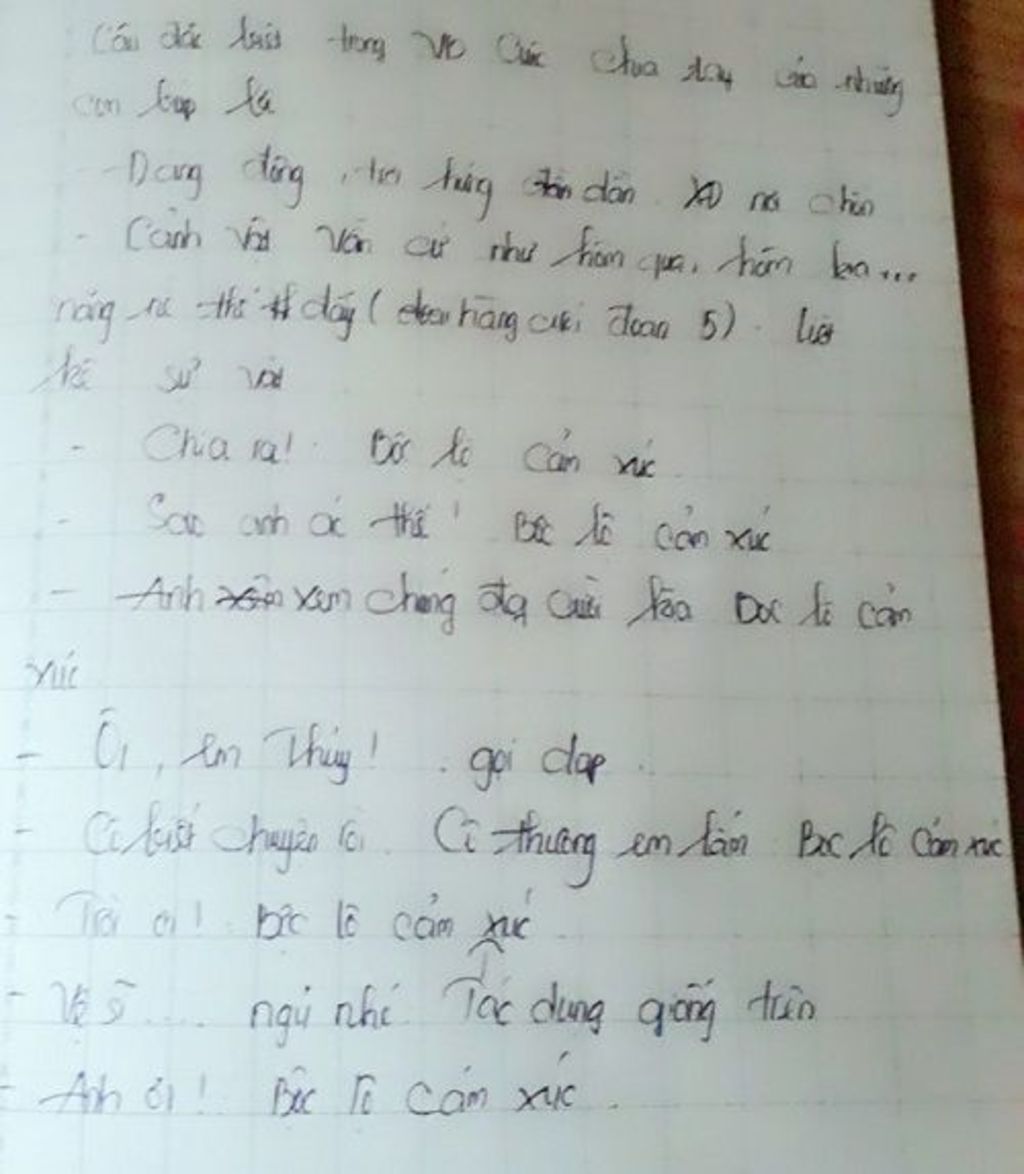 Câu đặc biệt trong VB Cuộc chia tay của những
con búp bê
- Đang đông, trời hửng dần dần. XĐ nơi chốn
- Cảnh vật vẫn cứ như hôm qua, hôm kia...
nắng như thế đấy ( hàng cuối đoạn 5). Liệt
kê sự vật
- Chia ra! Bộc lộ cảm xúc
- Sao anh ác thế! Bộc lộ cảm xúc
- Anh xem chúng đã cười bộc lộ cảm
xúc
- Ôi, em Thủy! gọi đáp.
- Cô biết chuyện rồi. Cô thương em lắm Bộc lộ cảm xúc
- Trời ơi! Bộc lộ cảm xúc
- Vệ sĩ .... ngủ nhé Tác dụng giống trên
- Anh ơi! Bộc lộ cảm xúc.